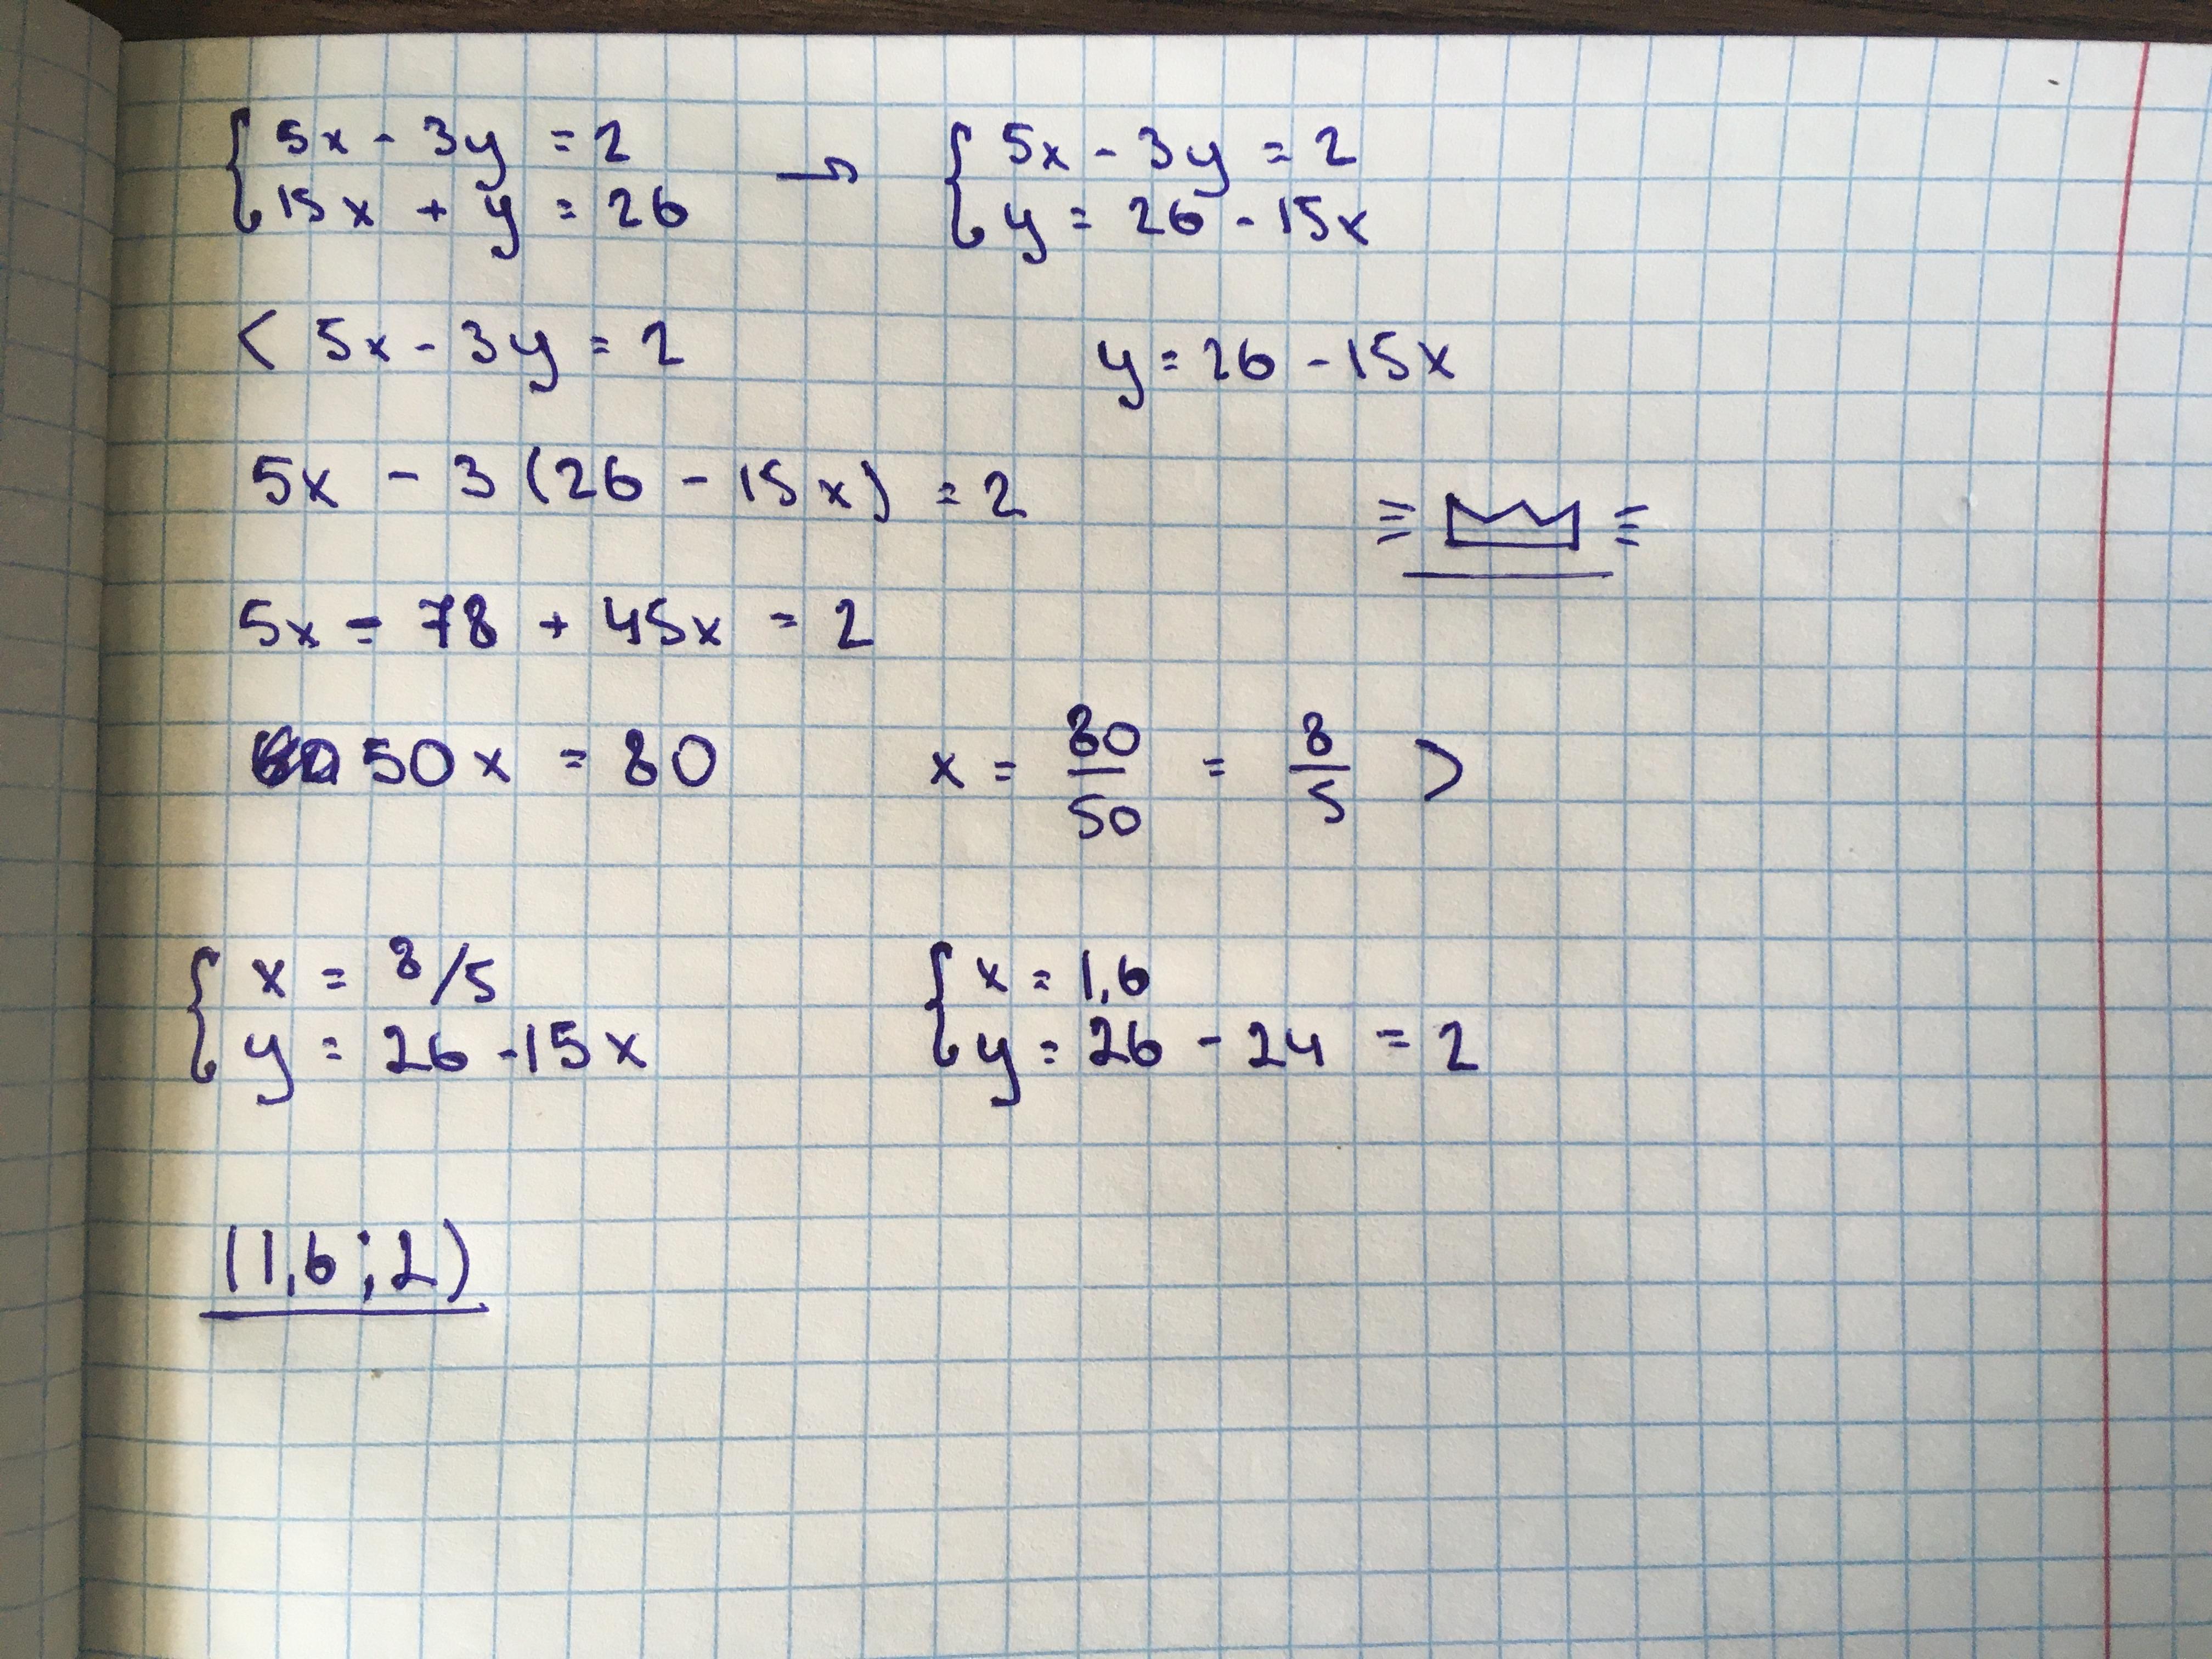 { 5x - 3y = 2 → { 5x - 3y = 2
15x + y = 26 y = 26 - 15x
< 5x - 3y = 2 y = 26 - 15x
5x - 3 (26 - 15x) = 2
5x - 78 + 45x = 2
50x = 80 x = 80/50 = 8/5 >
{ x = 8/5 { x = 1,6
y = 26 - 15x y = 26 - 24 = 2
(1,6 ; 2)